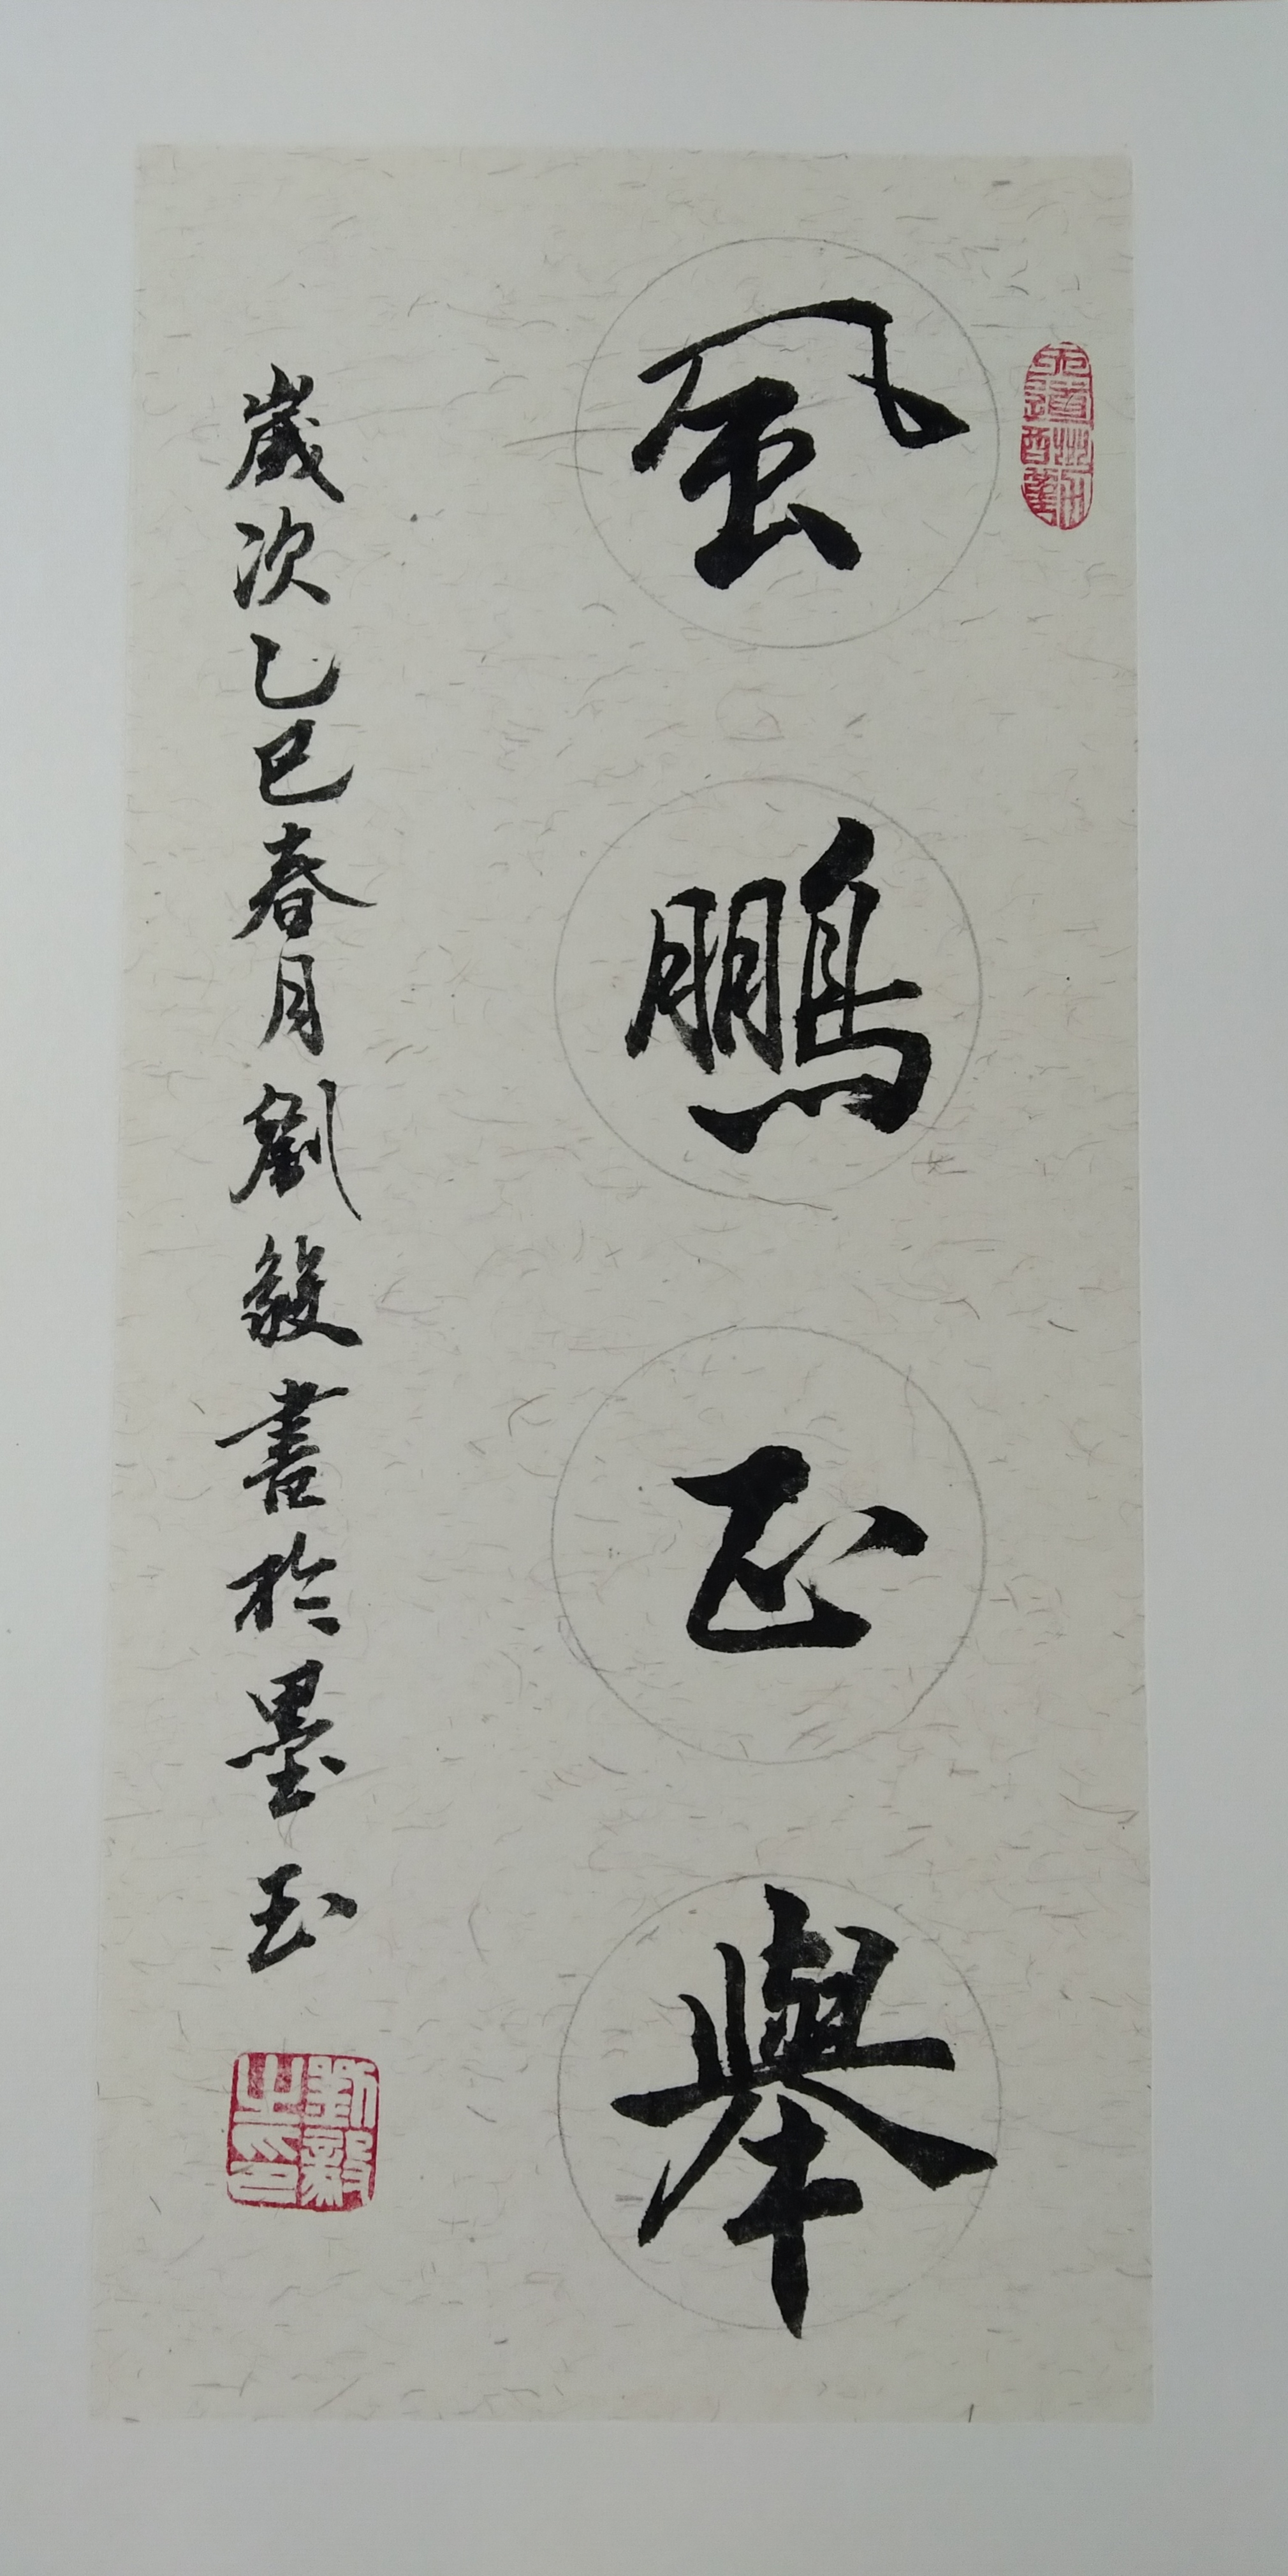 風鵬正舉
歲次乙巳春月劉毅書於墨玉
天道酬勤
劉毅之印